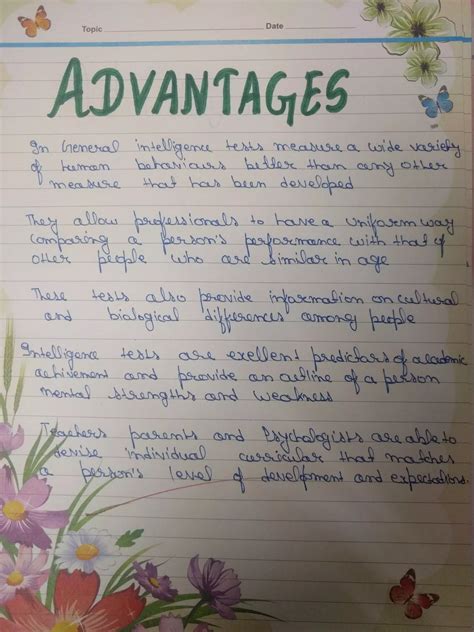 Topic Date
ADVANTAGES
In General intelligence tests measure a wide variety
of human behaviours better than any other
measure that has been developed
They allow professionals to have a uniform way
comparing a person's performance with that of
other people who are similar in age
These tests also provide information on cultural
and biological differences among people
Intelligence tests are exellent predictors of academic
achivement and provide an outline of a person
mental strengths and weakness
Teachers parents and Psychologists are able to
devise individual curricular that matches
a person's level of development and expectations.